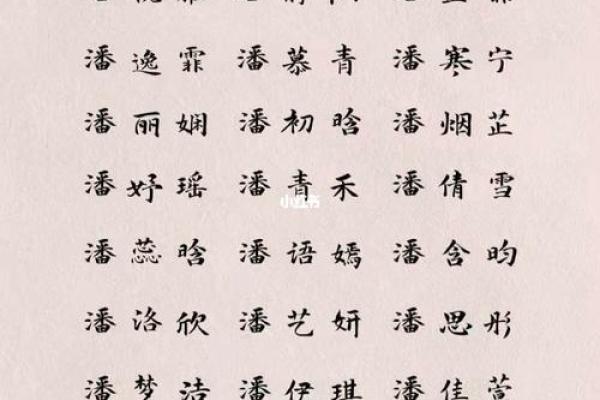 潘逸霏 潘慕青 潘寒宁
潘丽娴 潘初晗 潘烟芷
潘妤瑶 潘青禾 潘倩雪
小红书
潘蕊晗 潘语嫣 潘含昀
潘洛欣 潘艺妍 潘思彤
潘梦洁 潘伊琪 潘佳萱